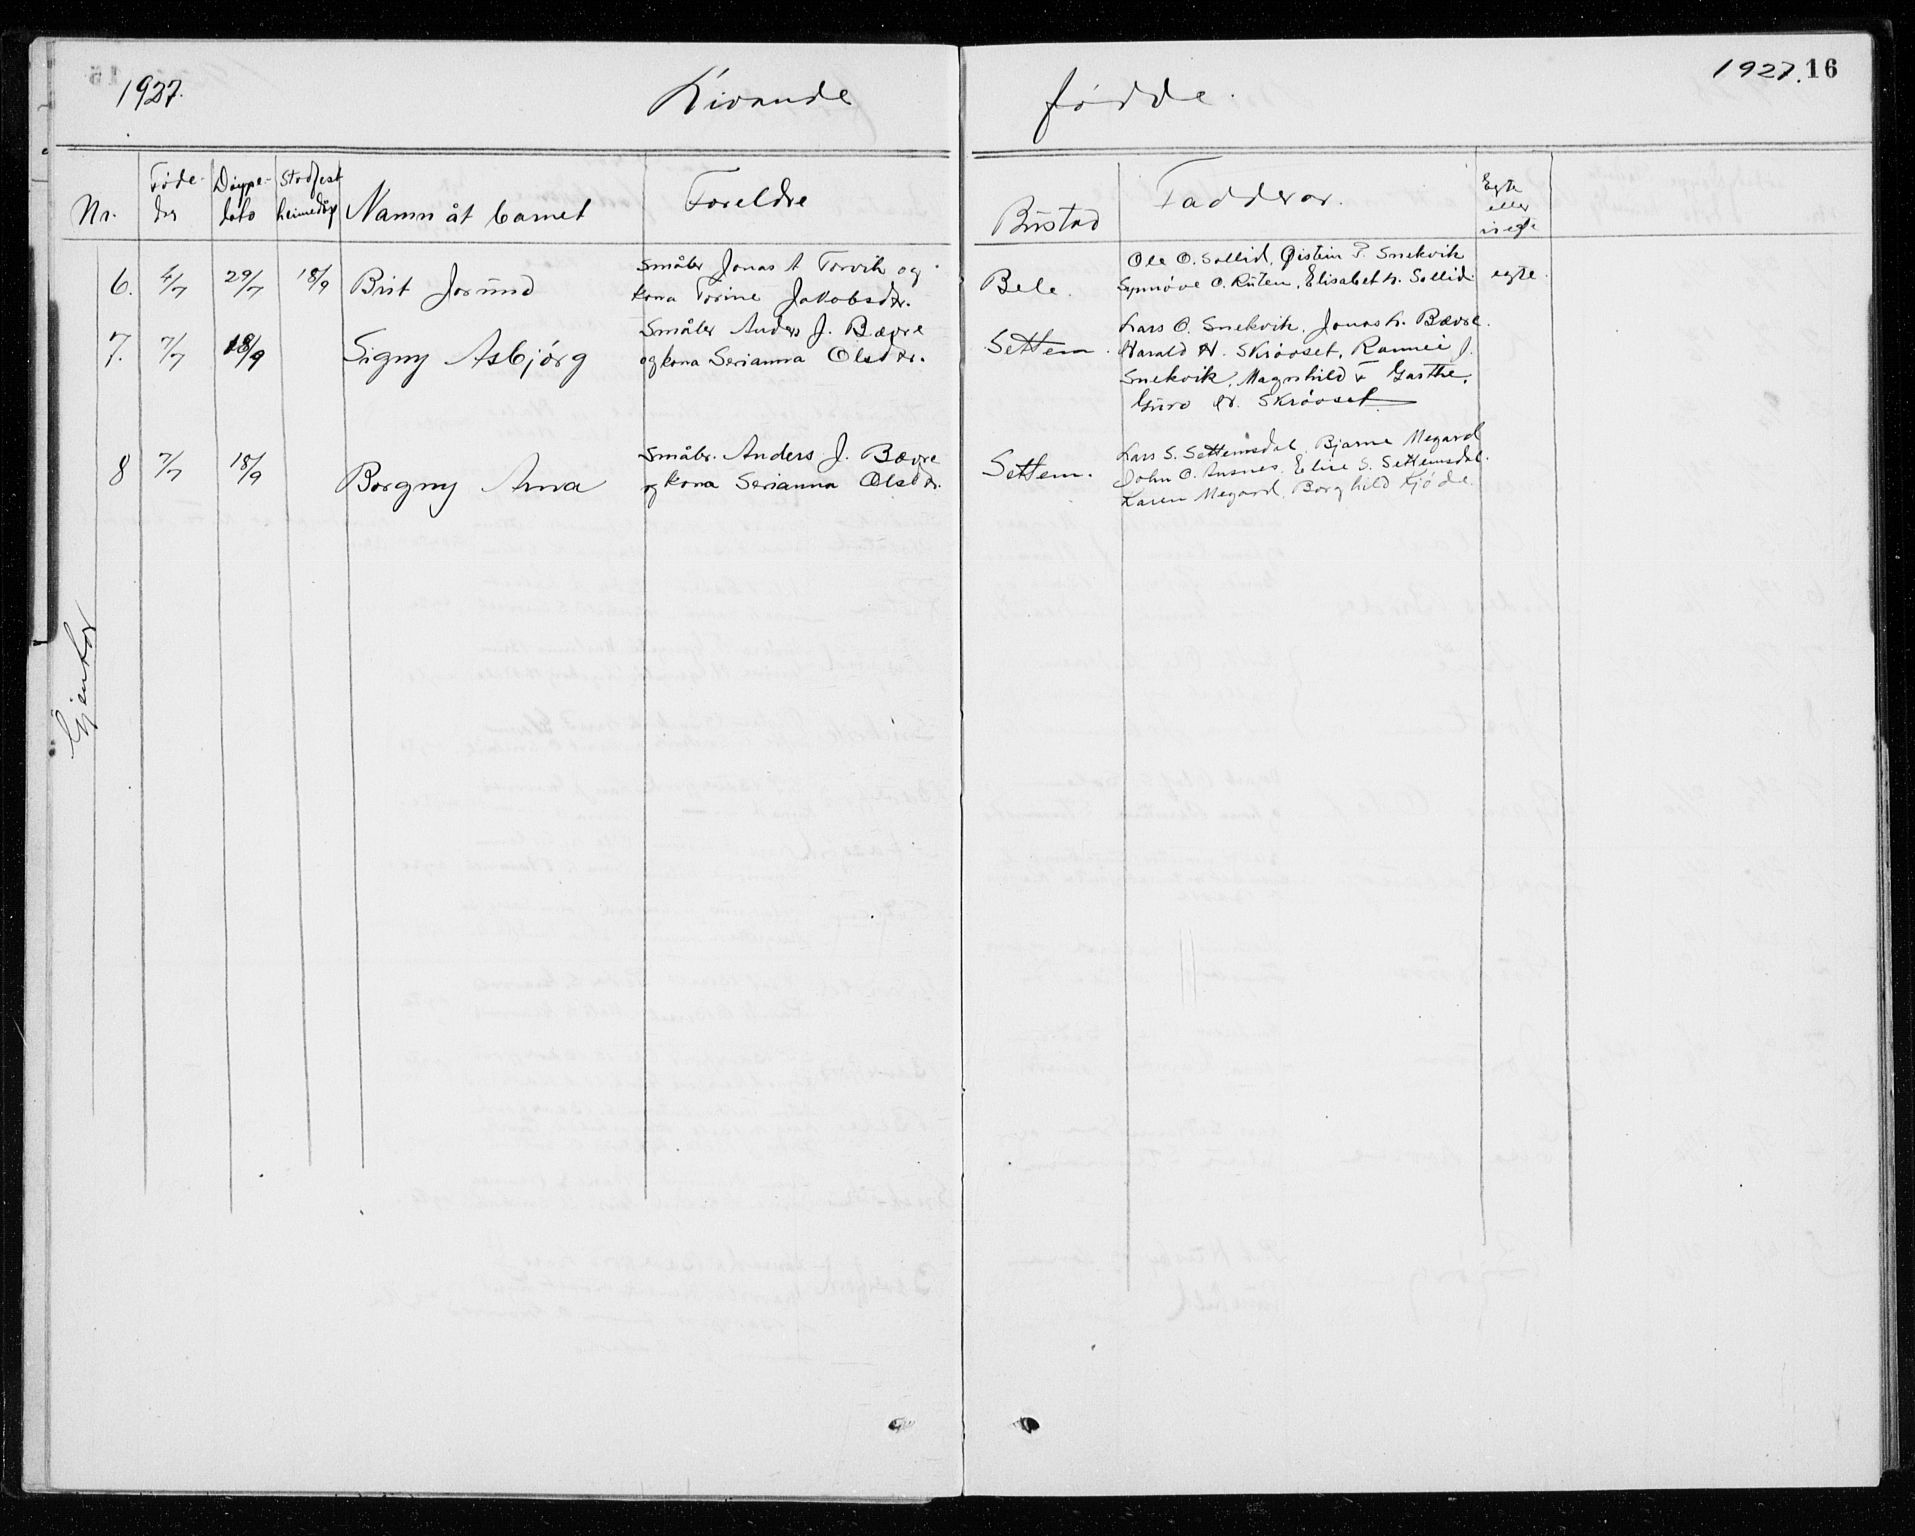 1927.
Livande fødde.
1927. 16
Nr.
Føde-
dag
Døype-
dato
Stadfest
heimedøp
Namn åt barnet
Foreldre
Bustad
Fadderar.
Egte
eller
uegte
Gjentor
6. 4/7 29/7 18/9 Brit Jorund
Småbr Jonas A Torvik og
kona Torine Jakobsdtr.
Bele.
Ole O. Sollid, Øistein P. Snekvik
Synnøve O. Ruten, Elisabet h. Sollid.
egte.
7. 7/7 18/9 Signy Asbjørg
Småbr Anders J. Bævre
og kona Serianna Olsdtr.
Settem.
Lars O. Snekvik, Jonas L. Bævre.
Harald H. Skrøvset, Rannei J.
Snekvik, Magnhild T Garthe,
Guro H. Skrøvset
8 7/7 18/9 Borgny Anna
Småbr. Anders J. Bævre
og kona Serianna Olsdtr.
Settem.
Lars S. Settemsdal, Bjarne Megard
John O. Ansnes, Elise S. Settemsdal.
Karen Megard, Borghild Fjøde.